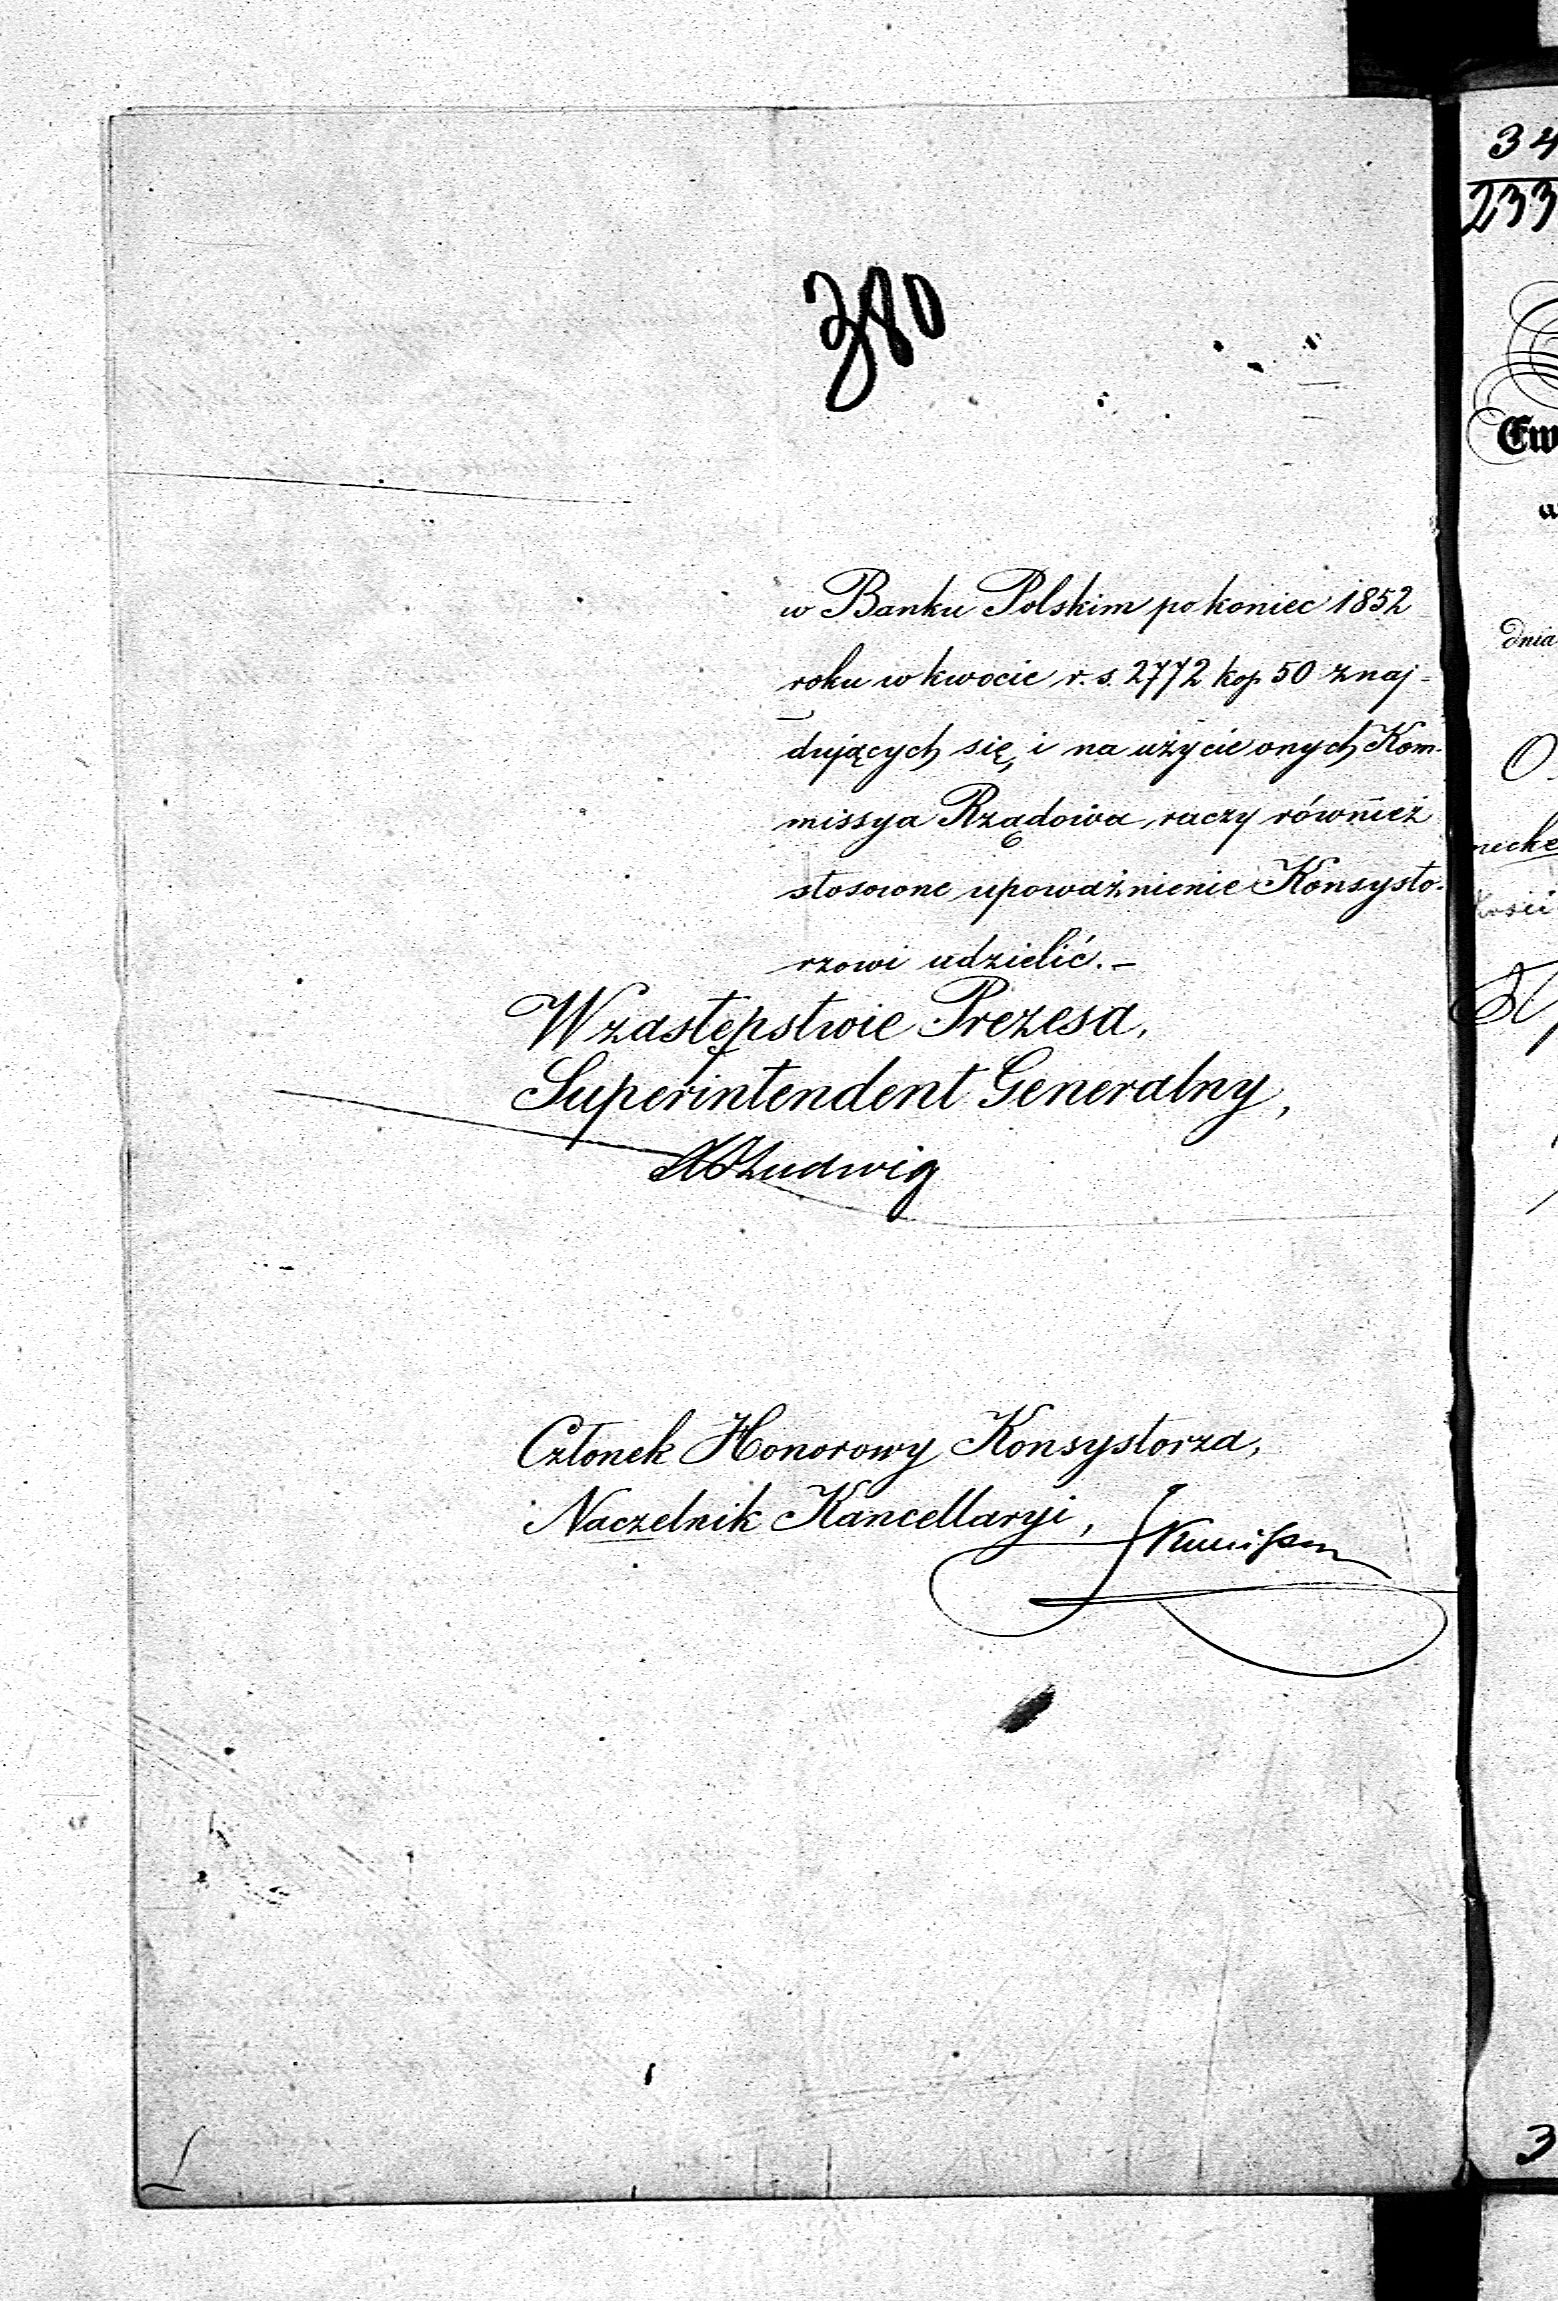 380
w Banku Polskim po koniec 1852
roku w kwocie r. s. 2772 kop 50 znaj=
dujących się, i na użycie onych Kom-
missya Rządowa raczy również
stosowne upoważnienie Konsysto-
rzowi udzielić.–
W zastępstwie Prezesa,
Superintendent Generalny,
Ludwig
Członek Honorowy Konsystorza,
Naczelnik Kancellaryi,
34
233
Ew
dnia